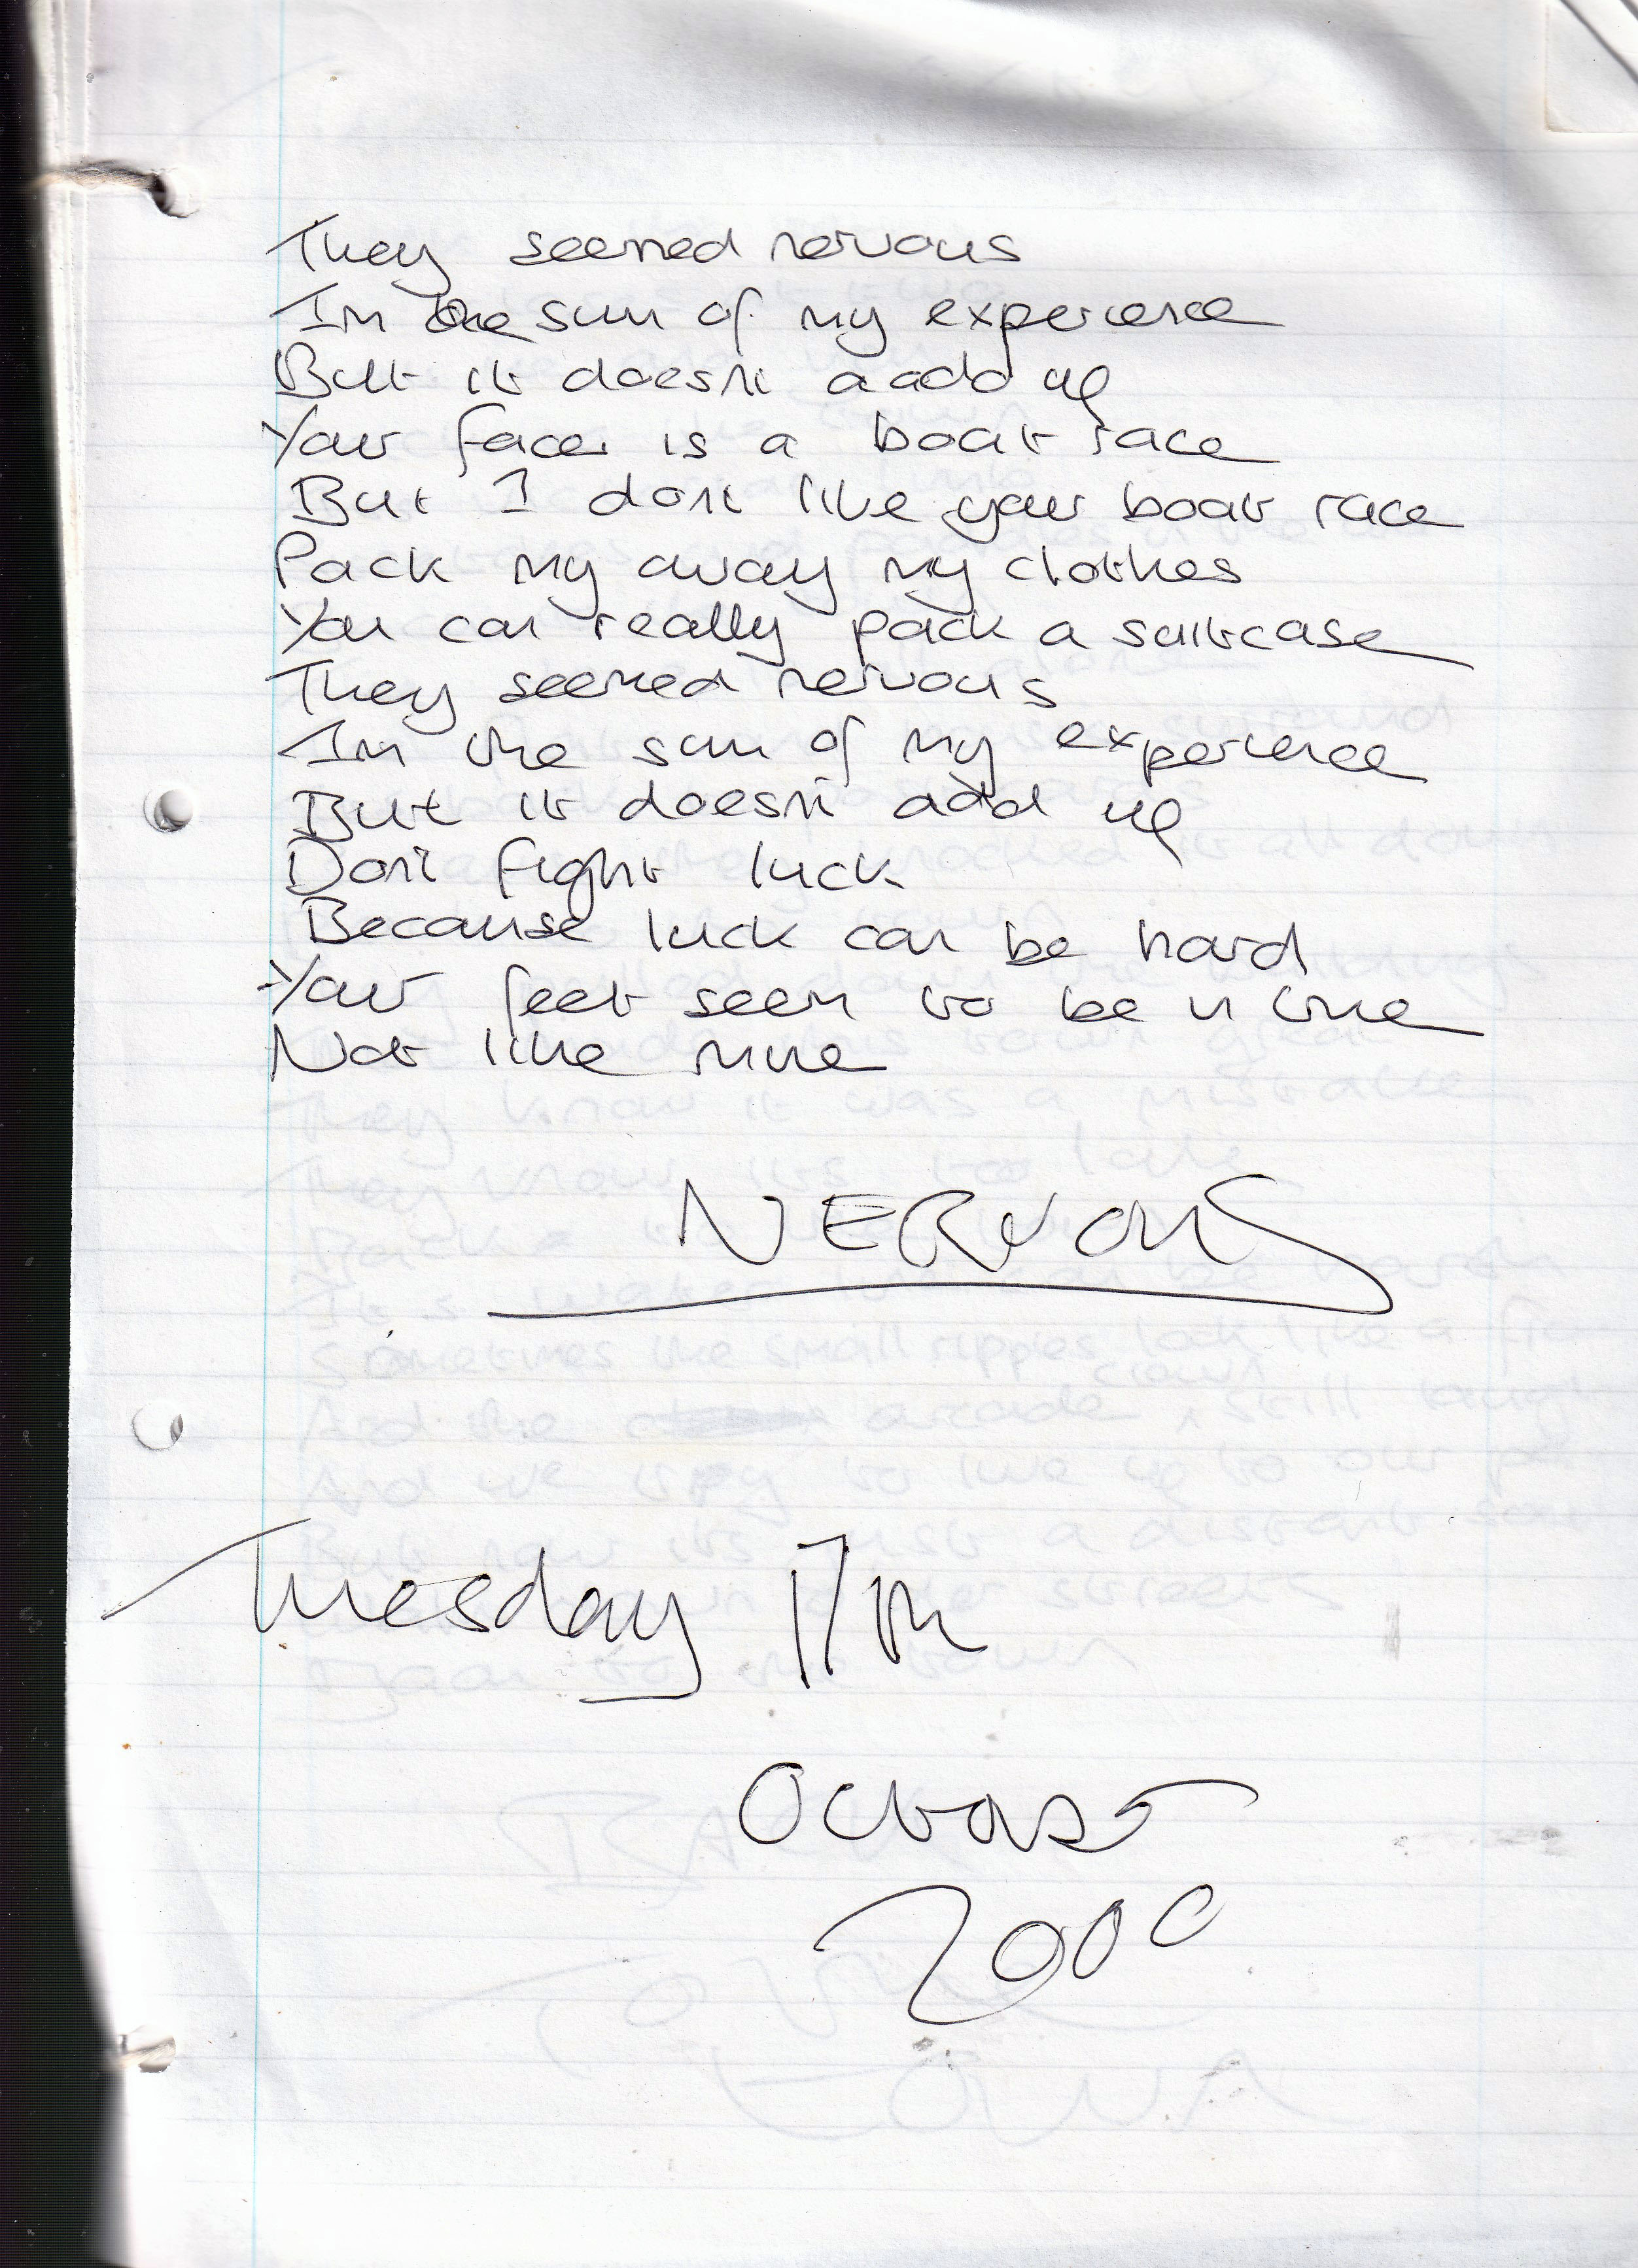 They seemed nervous
In the sum of my experience
But it doesn't a add up
Your face is a boat race
But I dont like your boat race
Pack my away my clothes
You can really pack a suitcase
They seemed nervous
In the sum of my experience
But it doesn't add up
Don't fight luck
Because luck can be hard
Your feet seem to be in line
Not like mine
NERVOUS
Tuesday 17th
October
2000